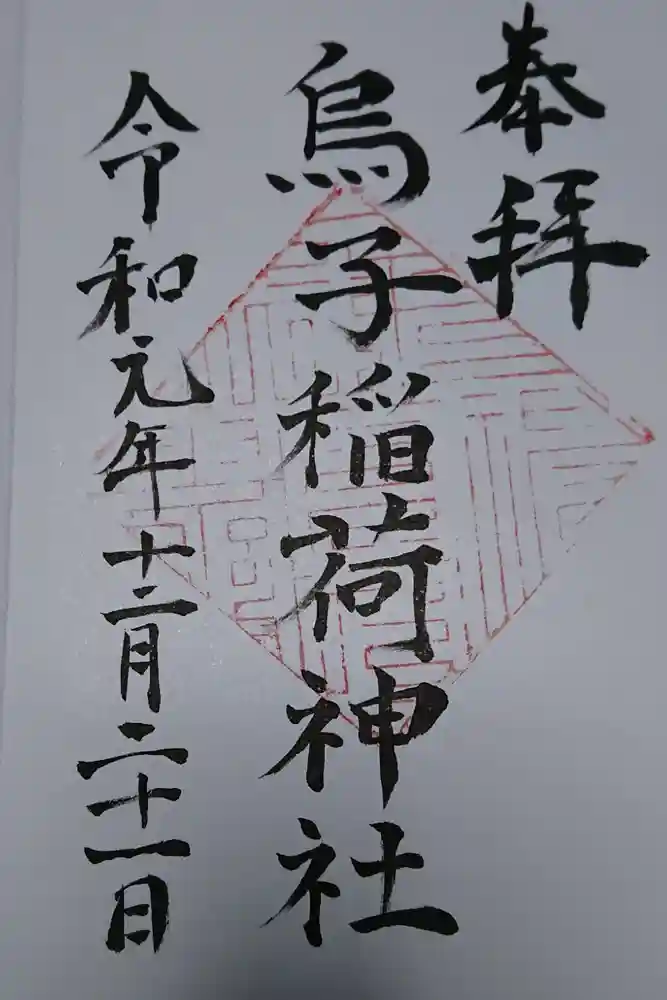 奉拝
烏子稲荷神社
令和元年十二月二十一日